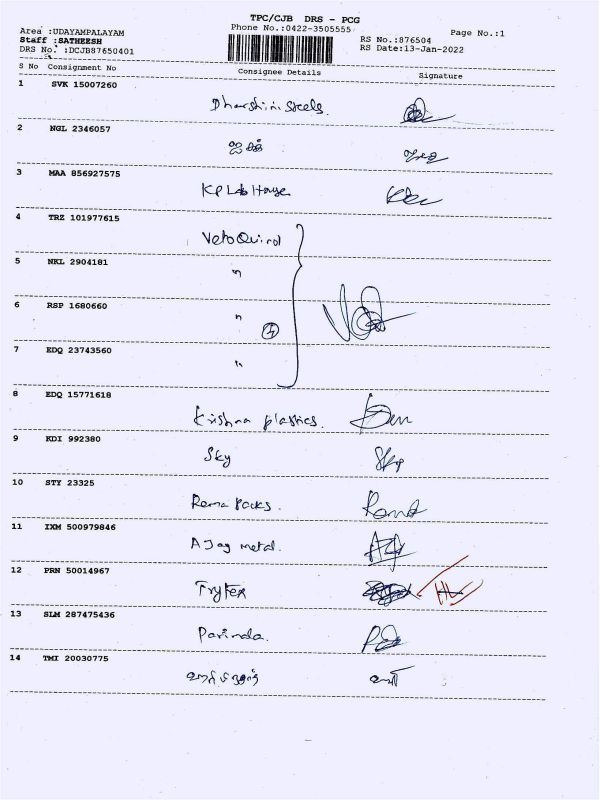 TPC/CJB DRS - PCG
Phone No.:0422-3505555
Page No.:1
Area :UDAYAMPALAYAM
Staff :SATHEESH
RS No.:876504
DRS No. :DCJB87650401
RS Date:13-Jan-2022
S No Consignment No Consignee Details Signature
1 SVK 15007260
Dharshini steels.
2 NGL 2346057
3 MAA 856927575
KP Lab House
4 TRZ 101977615
VetoQuinol
5 NKL 2904181
"
6 RSP 1680660
" 4
7 EDQ 23743560
"
8 EDQ 15771618
Krishna plastics.
9 KDI 992380
Sky Sky
10 STY 23325
Rema Packs.
11 IXM 500979846
AJay metal.
12 PRN 50014967
Frytex
13 SLM 287475436
Parinda.
14 TMI 20030775